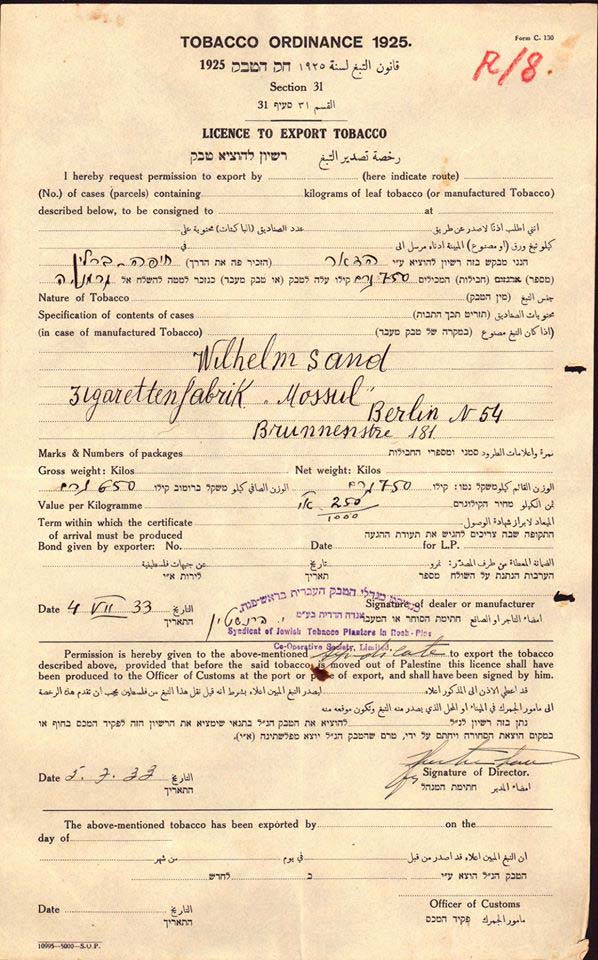 Form C. 130
R/8.
TOBACCO ORDINANCE 1925.
قانون التبغ لسنة ١٩٢٥ חק הטבק 1925
Section 31
القسم ٣١ סעיף 31
LICENCE TO EXPORT TOBACCO
رخصة تصدير التبغ רשיון להוציא טבק
I hereby request permission to export by (here indicate route)
(No.) of cases (parcels) containing kilograms of leaf tobacco (or manufactured Tobacco)
described below, to be consigned to at
عدد الصناديق (الباكتات) محتوية على
كيلو تبغ ورق (او مصنوع) المبينة ادناه مرسل الى في
הנני מבקש בזה רשיון להוציא ע״י הדאר (הזכיר פה את הדרך) חיפה-ברלין
(מספר) ארגזים (חבילות) המכילים 750 גרם קילו עלה לטבק (או טבק מעבד) כנזכר למטה להשלח אל גרמניה
Nature of Tobacco جنس التبغ (מין הטבק)
Specification of contents of cases محتويات الصناديق (תוכן התבות)
(in case of manufactured Tobacco) (اذا كان التبغ مصنوع) (במקרה של טבק מעבד)
Wilhelm Sand
Zigarettenfabrik „Mossul"
Berlin N 54
Brunnenstre 181
Marks & Numbers of packages نمرة واعلامات الطرود סמני ומספרי החבילות
Gross weight: Kilos Net weight: Kilos
650 גרם الوزن الصافي كيلو משקל ברוטו קילו 750 גרם الوزن القائم كيلو משקל נטו: קילו
Value per Kilogramme 250/1000 א״י ثمن الكيلو מחיר הקילוגרם
Term within which the certificate الميعاد لابراز شهادة الوصول
of arrival must be produced התקופה שבה צריכים להגיש את תעודת ההגעה
Bond given by exporter: No. Date for L.P.
الضمانة المعطاة من طرف المصدر: نمرو تاريخ عن جنيهات فلسطينية
הערבות הנתנת על השולח מספר תאריך לירות א״י
Signature of dealer or manufacturer
Date 4 VII 33 التاريخ امضاء التاجر او الصانع חתימת הסוחר או המעבד
התאריך
מגדלי הטבק העברית בראש-פנה,
אגדה הדדית בע״מ
Syndicate of Jewish Tobacco Planters in Rosh-Pina
Co-Operative Society, Limited.
Permission is hereby given to the above-mentioned Syndicate to export the tobacco
described above, provided that before the said tobacco is moved out of Palestine this licence shall have
been produced to the Officer of Customs at the port or place of export, and shall have been signed by him.
قد اعطي الاذن الى المذكور اعلاه ليصدر التبغ المبين اعلاه بشرط انه قبل نقل هذا التبغ من فلسطين يجب ان تقدم هذه الرخصة
الى مامور الجمرك في الميناء او المحل الذي يصدر منه التبغ وتكون موقعه منه
נתן בזה רשיון לנ״ל להוציא את הטבק הנ״ל בתנאי שימציא את הרשיון הזה לפקיד המכס בחוף או
במקום הוצאת הסחורה ויחתם על ידו, טרם שהטבק הנ״ל יוצא מפלשתינה (א״י).
Date 5.7.33 التاريخ Signature of Director.
התאריך امضاء المدير חתימת המנהל
The above-mentioned tobacco has been exported by on the
day of
ان التبغ المبين اعلاه قد اصدر من قبل في يوم من شهر
הטבק הנ״ל הוצא ע״י ב לחדש
Officer of Customs
Date التاريخ مامور الجمرك פקיד המכס
התאריך
10995—5000—S.O.P.